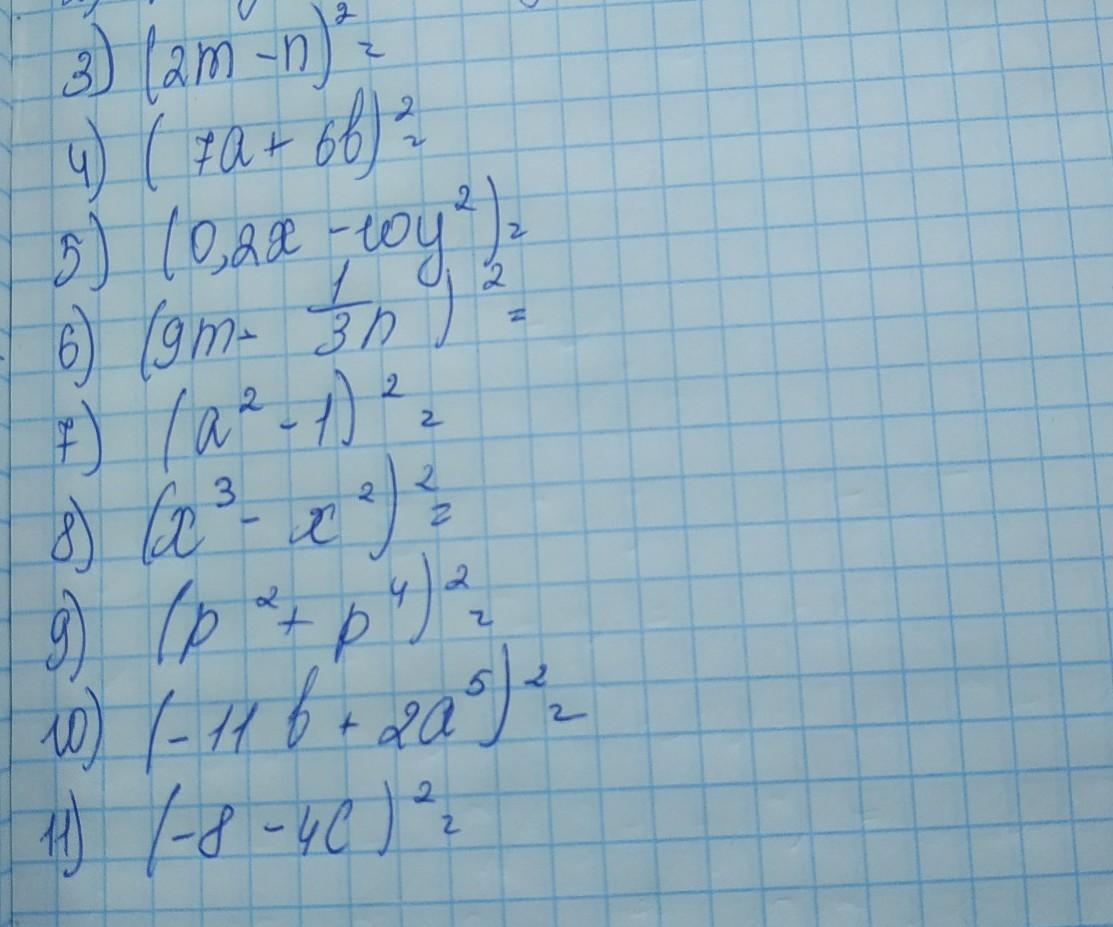 3) (2m - n)² =
4) (7a + 6b)² =
5) (0,2x - 10y²) =
6) (9m - 1/3 n)² =
7) (a² - 1)² =
8) (x³ - x²)² =
9) (p² + p⁴)² =
10) (-11b + 2a⁵)² =
11) (-8 - 4c)² =